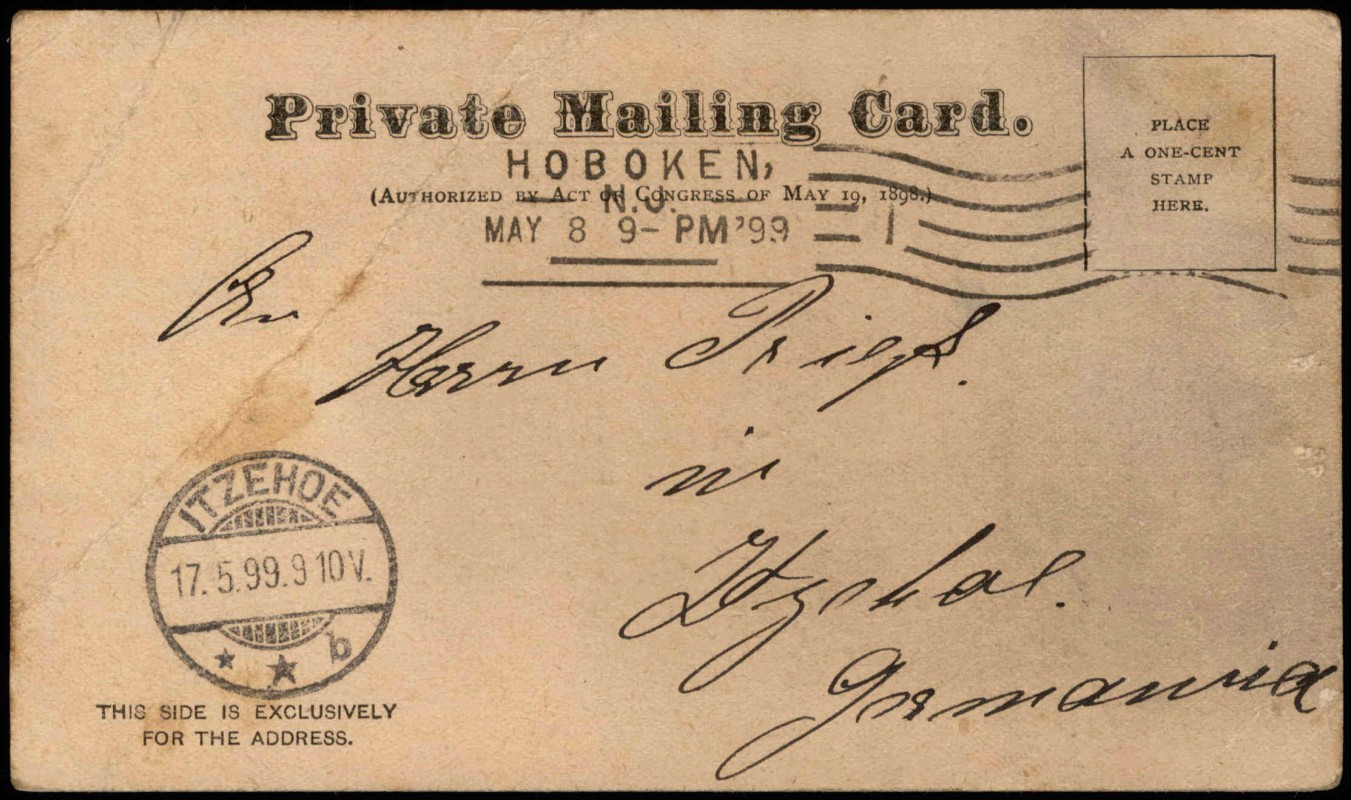 Private Mailing Card.
HOBOKEN,
(AUTHORIZED BY ACT OF CONGRESS OF MAY 19, 1898.)
N.J.
MAY 8 9-PM '99
1
PLACE
A ONE-CENT
STAMP
HERE.
An
Herrn
in
Itzehoe.
Germania
ITZEHOE
17.5.99.9 10V.
b
THIS SIDE IS EXCLUSIVELY
FOR THE ADDRESS.